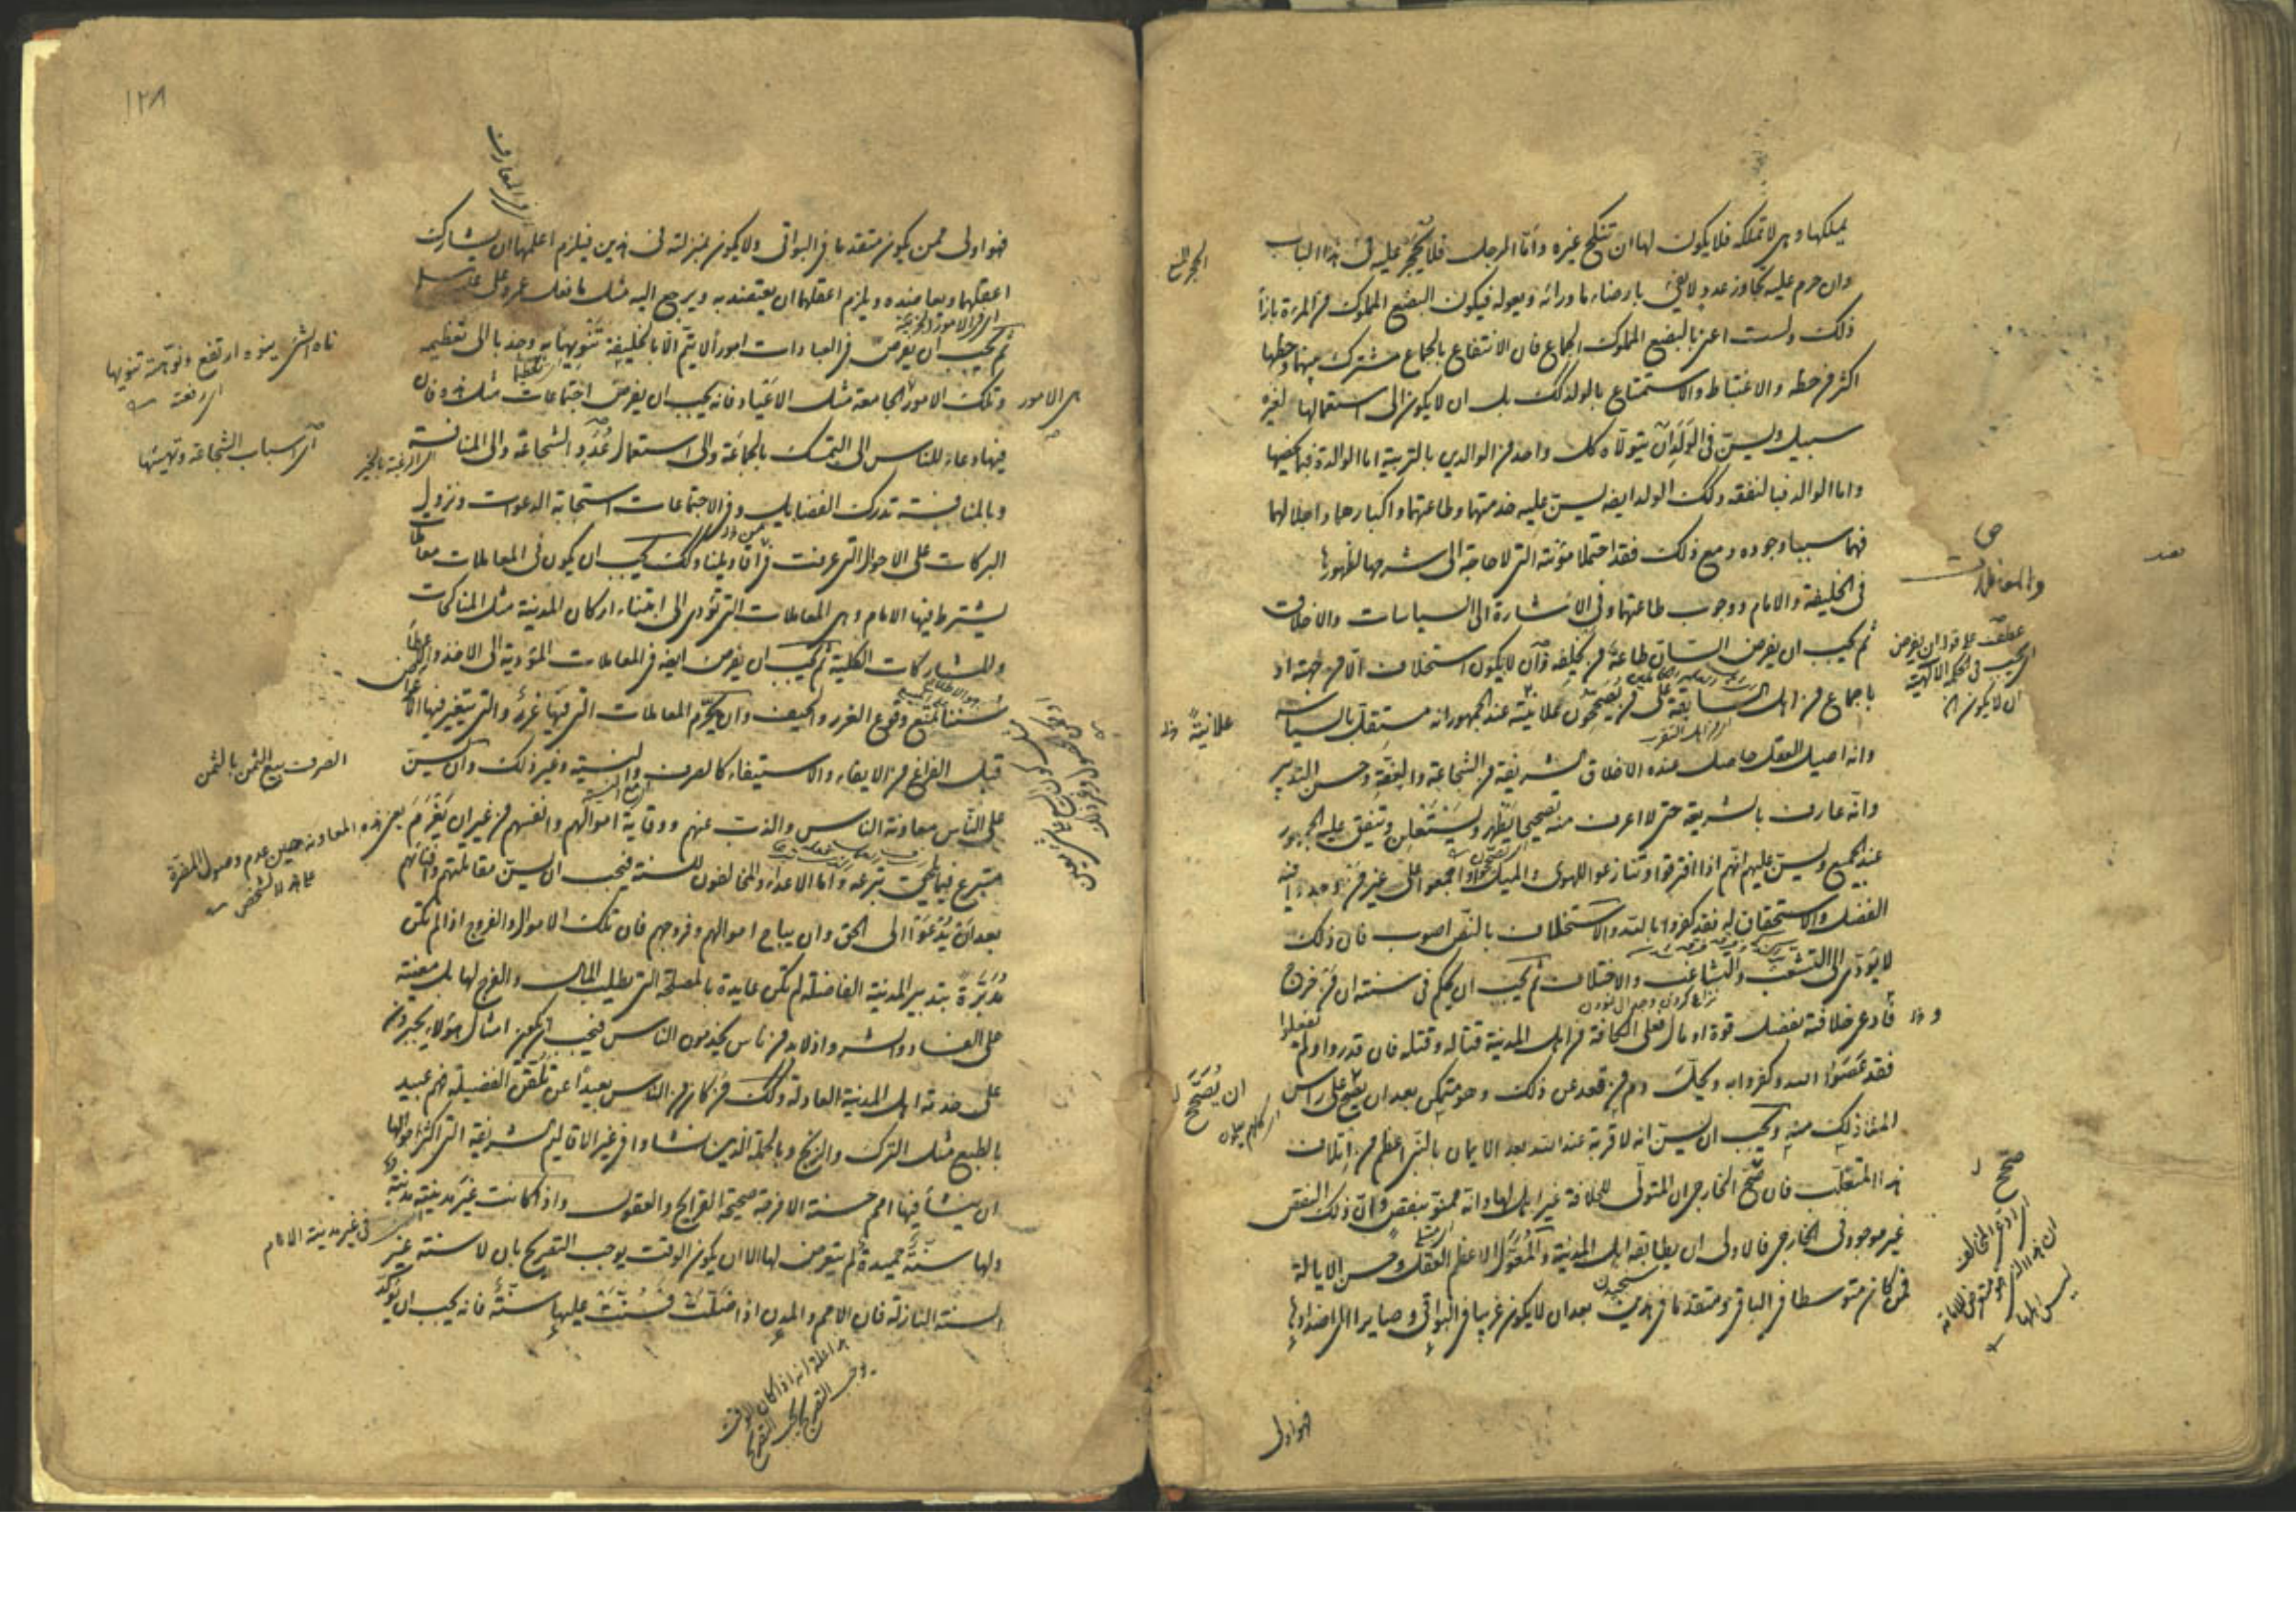 يملكها وهي لا تملكه فلا يكون لها ان تنكح غيره واما الرجل فلا يحجر عليه في هذا الباب
وان حرم عليه تجاوز عدد لا يفي بارضاء ما ورائه ويعوله فيكون البضع المملوك من المرءة بازاء
ذلك ولست اعني بالبضع المملوك الجماع فان الانتفاع بالجماع مشترك بينهما وحظها
اكثر من حظه والاغتباط والاستمتاع بالولد كذلك بل ان لا يكون الى استعمالها لغيره
سبيل ويسن في الولد ان يتولاه كل واحد من الوالدين بالتربية اما الوالدة فبما يخصها
واما الوالد فبالنفقه وكذلك الولد ايضه يسن عليه خدمتهما وطاعتهما واكبارهما واجلالهما
فهما سببا وجوده ومع ذلك فقد احتملا مؤنته التي لا حاجة الى شرحها لظهورها
في الخليفة والامام ووجوب طاعتهما وفي الاشارة الى السياسات والاخلاق
ثم يجب ان يفرض السان طاعة من يخلفه وان لا يكون استخلاف الا من جهته او
باجماع من اهل السابقة على من يصححون علانية عند الجمهور انه مستقل بالسياسة
وانه اصيل العقل حاصل عنده الاخلاق الشريفة من الشجاعة والعفة وحسن التدبير
وانه عارف بالشريعة حتى لا اعرف منه تصحيحا يظهر ويستعلن ويتفق عليه الجمهور
عند الجميع ويسن عليهم انهم اذا افترقوا وتنازعوا للهوى والميل او اجمعوا على غير من وجد فيه
الفضل والاستحقاق له فقد كفروا بالله والاستخلاف بالنص اصوب فان ذلك
لا يؤدي الى التشعب والتشاغب والاختلاف ثم يجب ان يحكم في سنته ان من خرج
فادعى خلافته بفضل قوة او مال فعلى الكافة من اهل المدينة قتاله وقتله فان قدروا ولم يفعلوا
فقد عصوا الله وكفروا به ويحل دم من قعد عن ذلك وهو متمكن بعد ان يصح على راس
الملاء ذلك منه ويجب ان يسن انه لا قربة عند الله بعد الايمان بالنبي اعظم من اتلاف
هذا المتغلب فان صحح الخارجي ان المتولي للخلافة غير اهل لها وانه ممنو بنقص وان ذلك النقص
غير موجود في الخارجي فالاولى ان يطابقه اهل المدينة والمعول الاعظم العقل وحسن الايالة
فمن كان متوسطا في الباقي ومتقدما في هذين بعد ان لا يكون غريبا في البواقي وصايرا الى اضدادها
فهو اولى
علانية
ان يصحح
صحح
فهو اولى ممن يكون متقدما في البواقي ولا يكون بمنزلته في هذين فيلزم اعلمهما ان يشارك
اعقلهما ويعاضده ويلزم اعقلهما ان يعتضد به ويرجع اليه مثل ما فعل عمر وعلى
ثم يجب ان يفرض في العبادات امورا لا يتم الا بالخليفة تنويها به وجذبا الى تعظيمه
وتلك الامور الجامعة مثل الاعياد فانه يجب ان يفرض اجتماعات مثل هذه فان
فيها دعاء للناس الى التمسك بالجماعة والى استعمال عدد الشجاعة والى المنافسة
وبالمنافسة تدرك الفضايل وفي الاجتماعات استجابة الدعوات ونزول
البركات على الاحوال التي عرفت من اقاويلنا وكذلك يجب ان يكون في المعاملات معاملات
يشترط فيها الامام وهي المعاملات التي تؤدي الى ابتناء اركان المدينة مثل المناكحات
والمشاركات الكلية ثم يجب ان يفرض ايضه في المعاملات المؤدية الى الاخذ والاعطاء
سننا تمنع وقوع الغرر والحيف وان يحرم المعاملات التي فيها غرر والتي يتغير فيها الاعواض
قبل الفراغ من الايفاء والاستيفاء كالصرف والنسية وغير ذلك وان يسن
على الناس معاونة الناس والذب عنهم ووقاية اموالهم وانفسهم من غير ان يغرم
متبرع فيما يلحق تبرعه واما الاعداء والمخالفون للسنة فيجب ان يسن مقاتلتهم وافنائهم
بعد ان يدعوا الى الحق وان يباح اموالهم وفروجهم فان تلك الاموال والفروج اذا لم تكن
مدبرة بتدبير المدينة الفاضلة لم تكن عايدة بالمصلحة التي يطلب المال والفرج لها بل معينة
على الفساد والشر واذ لا بد من ناس يخدمون الناس فيجب ان يكون امثال هؤلاء يجبرون
على خدمة اهل المدينة العادلة وكذلك من كان من الناس بعيدا عن تلقن الفضيلة فهم عبيد
بالطبع مثل الترك والزنج وبالجملة الذين نشاوا في غير الاقاليم الشريفة التي اكثر احوالها
ان ينشأ فيها امم حسنة الامزجة صحيحة القرايح والعقول واذا كانت غير مدينته مدينة
ولها سنة حميدة لم يتعرض لها الا ان يكون الوقت يوجب التصريح بان لا سنة غير
السنة النازلة فان الامم والمدن اذا ضلت فسنت عليها سنة فانه يجب ان يؤكد
١٢٨
ناه الشئ ينوه ارتفع ونوهته تنويها
اي رفعته
اي اسباب الشجاعة وتهيئتها
اي الامور
الصرف بيع الثمن بالثمن
في غير مدينة الامام